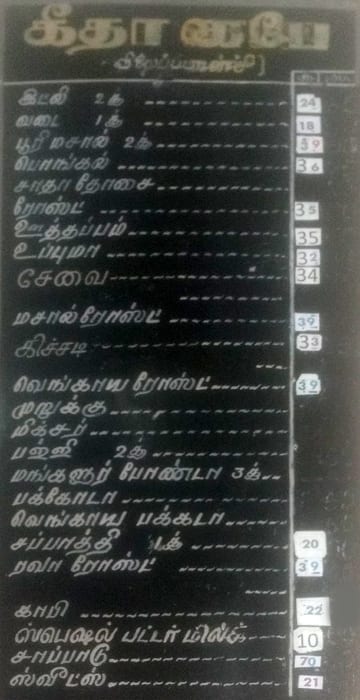 கீதா கபே
விலைப்பட்டியல்
இட்லி 2க் 24
வடை 1க் 18
பூரி மசால் 2க் 39
பொங்கல் 36
சாதா தோசை
ரோஸ்ட் 35
ஊத்தப்பம் 35
உப்புமா 32
சேவை 34
மசால் ரோஸ்ட் 39
கிச்சடி 33
வெங்காய ரோஸ்ட் 39
முறுக்கு
மிக்சர்
பஜ்ஜி 2க்
மங்களூர் போண்டா 3க்
பக்கோடா
வெங்காய பக்கடா
சப்பாத்தி 1க் 20
ரவா ரோஸ்ட் 39
காபி 22
ஸ்பெஷல் பட்டர் மில்க் 10
சாப்பாடு 70
ஸ்வீட்ஸ் 21